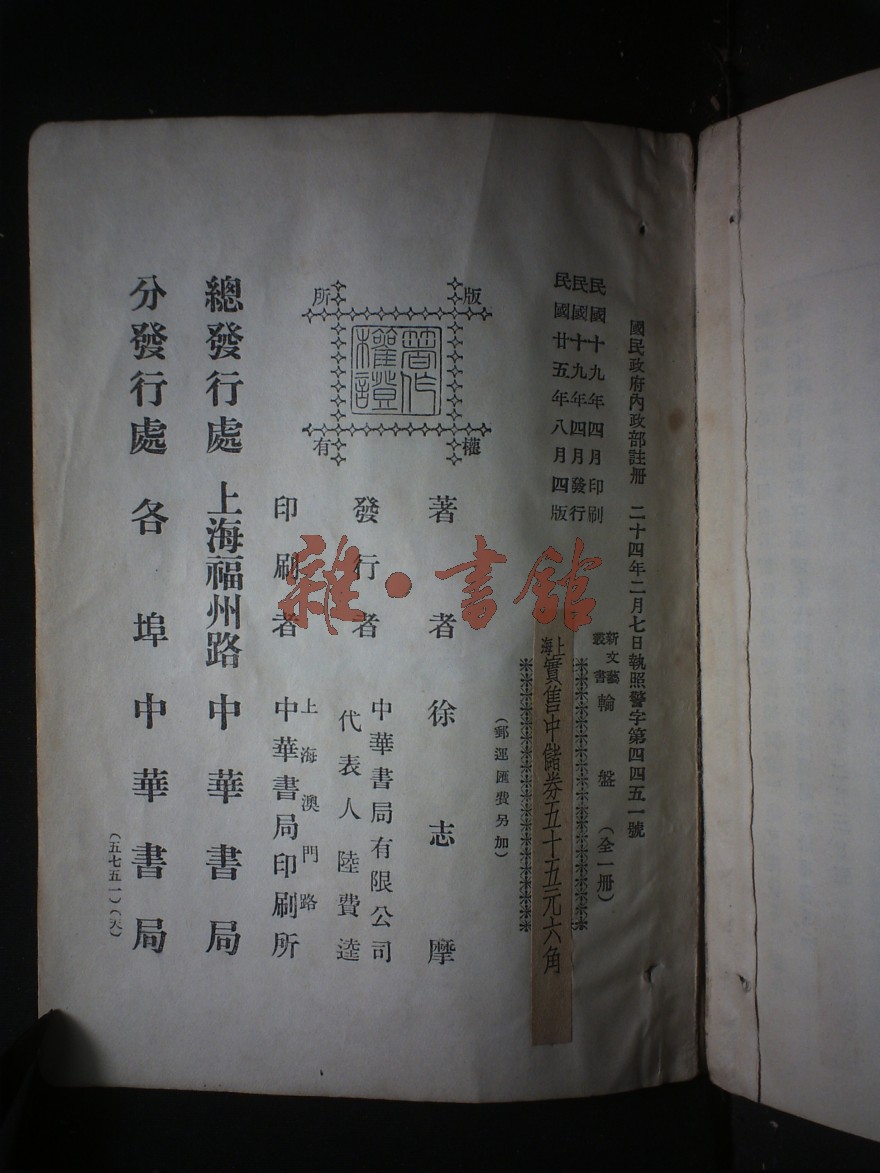 國民政府內政部註冊 二十四年二月七日執照警字第四四五一號
民國十九年四月印刷
民國十九年四月發行
民國廿五年八月四版
新文藝叢書 輪盤 (全一冊)
上海實售中儲券五十五元六角
(郵運匯費另加)
版權所有
著作權證
著者 徐志摩
發行者 中華書局有限公司
代表人 陸費逵
印刷者 上海澳門路
中華書局印刷所
總發行處 上海福州路 中華書局
分發行處 各埠中華書局
(五七五一)(天)
雜·書館